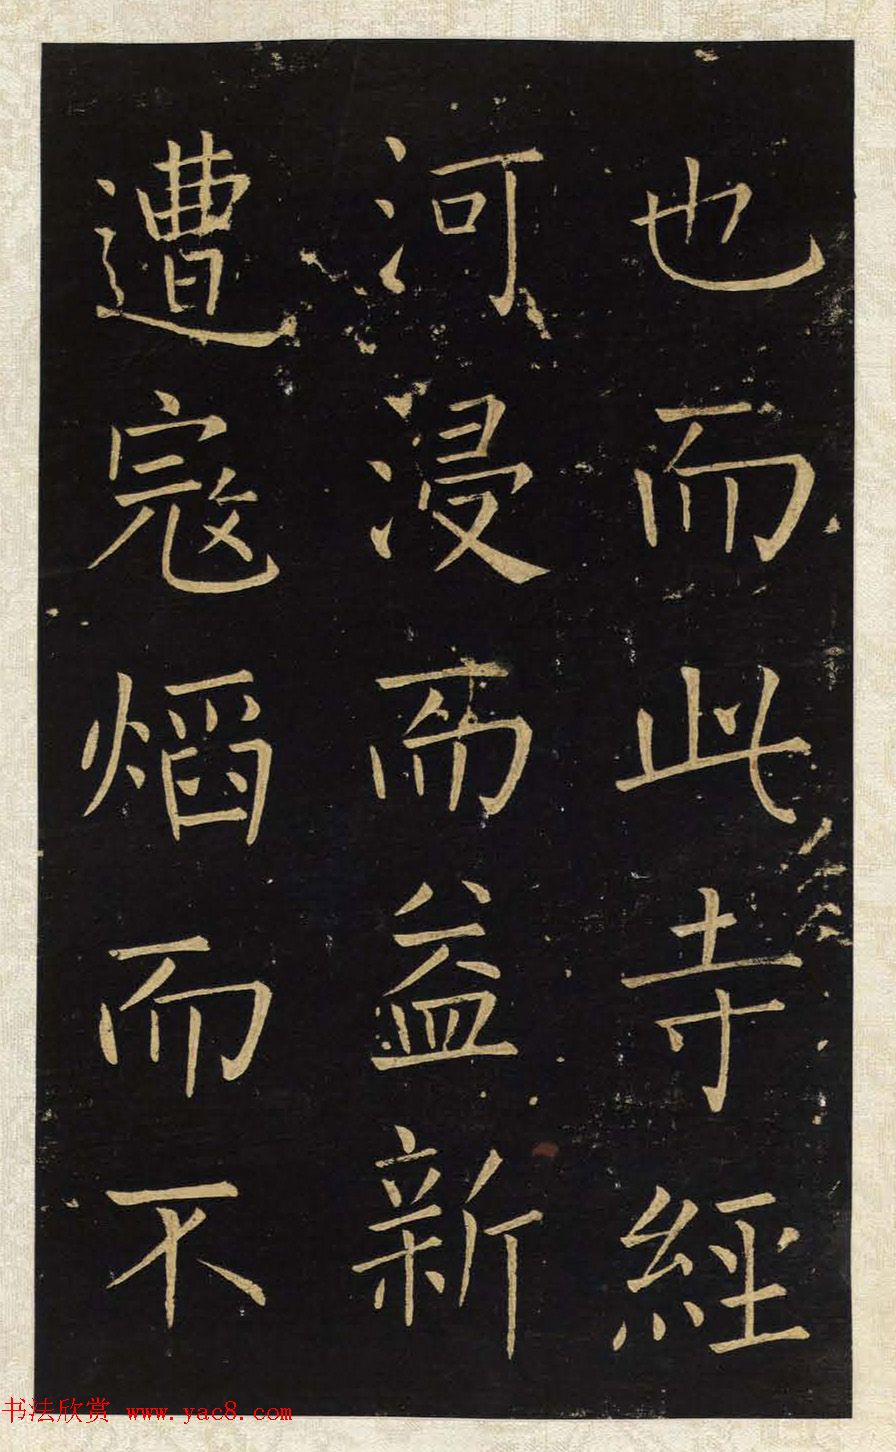 也而此寺經
河浸而益新
遭寇熖而不
书法欣赏 www.yac8.com